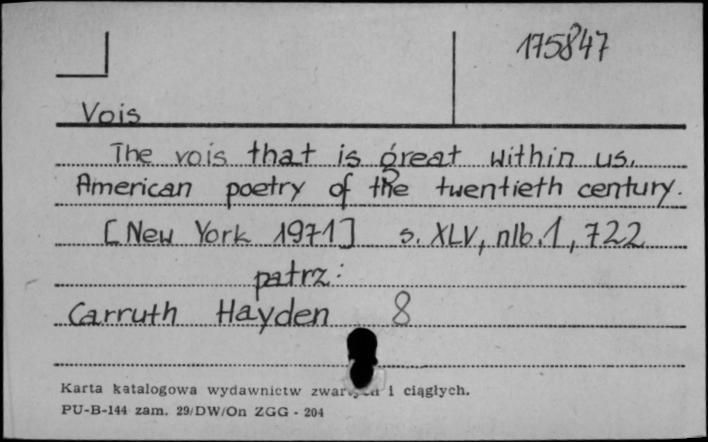 175847
Vois
The vois that is great within us.
American poetry of the twentieth century.
[New York 1971] s. XLV, nlb. 1, 722
patrz:
Carruth Hayden 8
Karta katalogowa wydawnictw i ciągłych.
PU-B-144 zam. 29/DW/On ZGG - 204